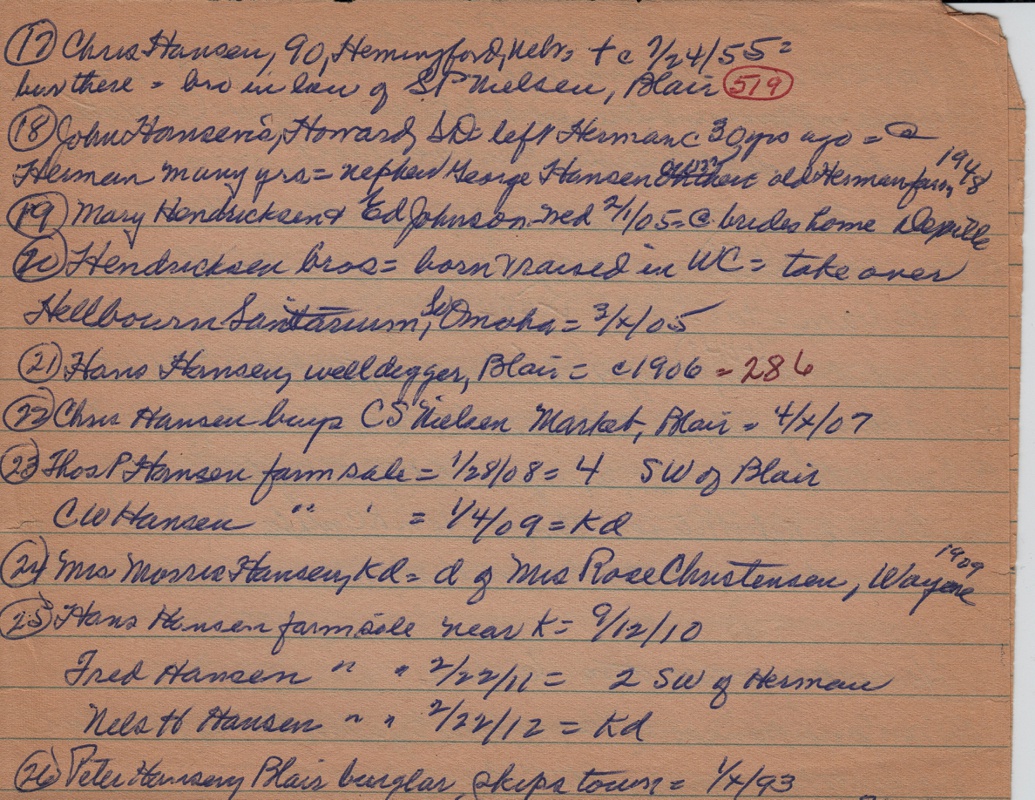 (17) Chris Hansen, 90, Hemingford, Nebr. + c 7/24/55 =
bur there = bro in law of SP Nielsen, Blair (579)
(18) John Hansen's, Howard, SD = left Herman c 30 yrs ago = @
1948
Herman many yrs = nephew George Hansen old Herman farm,
(19) Mary Hendricksen & Ed Johnson wed 2/1/05 = @ brides home
(20) Hendricksen bros = born & raised in WC = take over
Hellbourn Sanitarium, So Omaha = 3/x/05
(21) Hans Hansen, well digger, Blair = c1906 = 286
(22) Chris Hansen buys CS Nielsen Market, Blair = 4/x/07
(23) Thos P Hansen farm sale = 1/28/08 = 4 SW of Blair
CW Hansen " " = 1/4/09 = Kd
1909
(24) Mrs Morris Hansen, Kd = d of Mrs Rose Christensen, Wayne
(25) Hans Hansen farm sale near K = 9/12/10
Fred Hansen " " 2/22/11 = 2 SW of Herman
Nels H Hansen " " 2/22/12 = Kd
(26) Peter Hansen, Blair burglar, skips town = 1/x/93